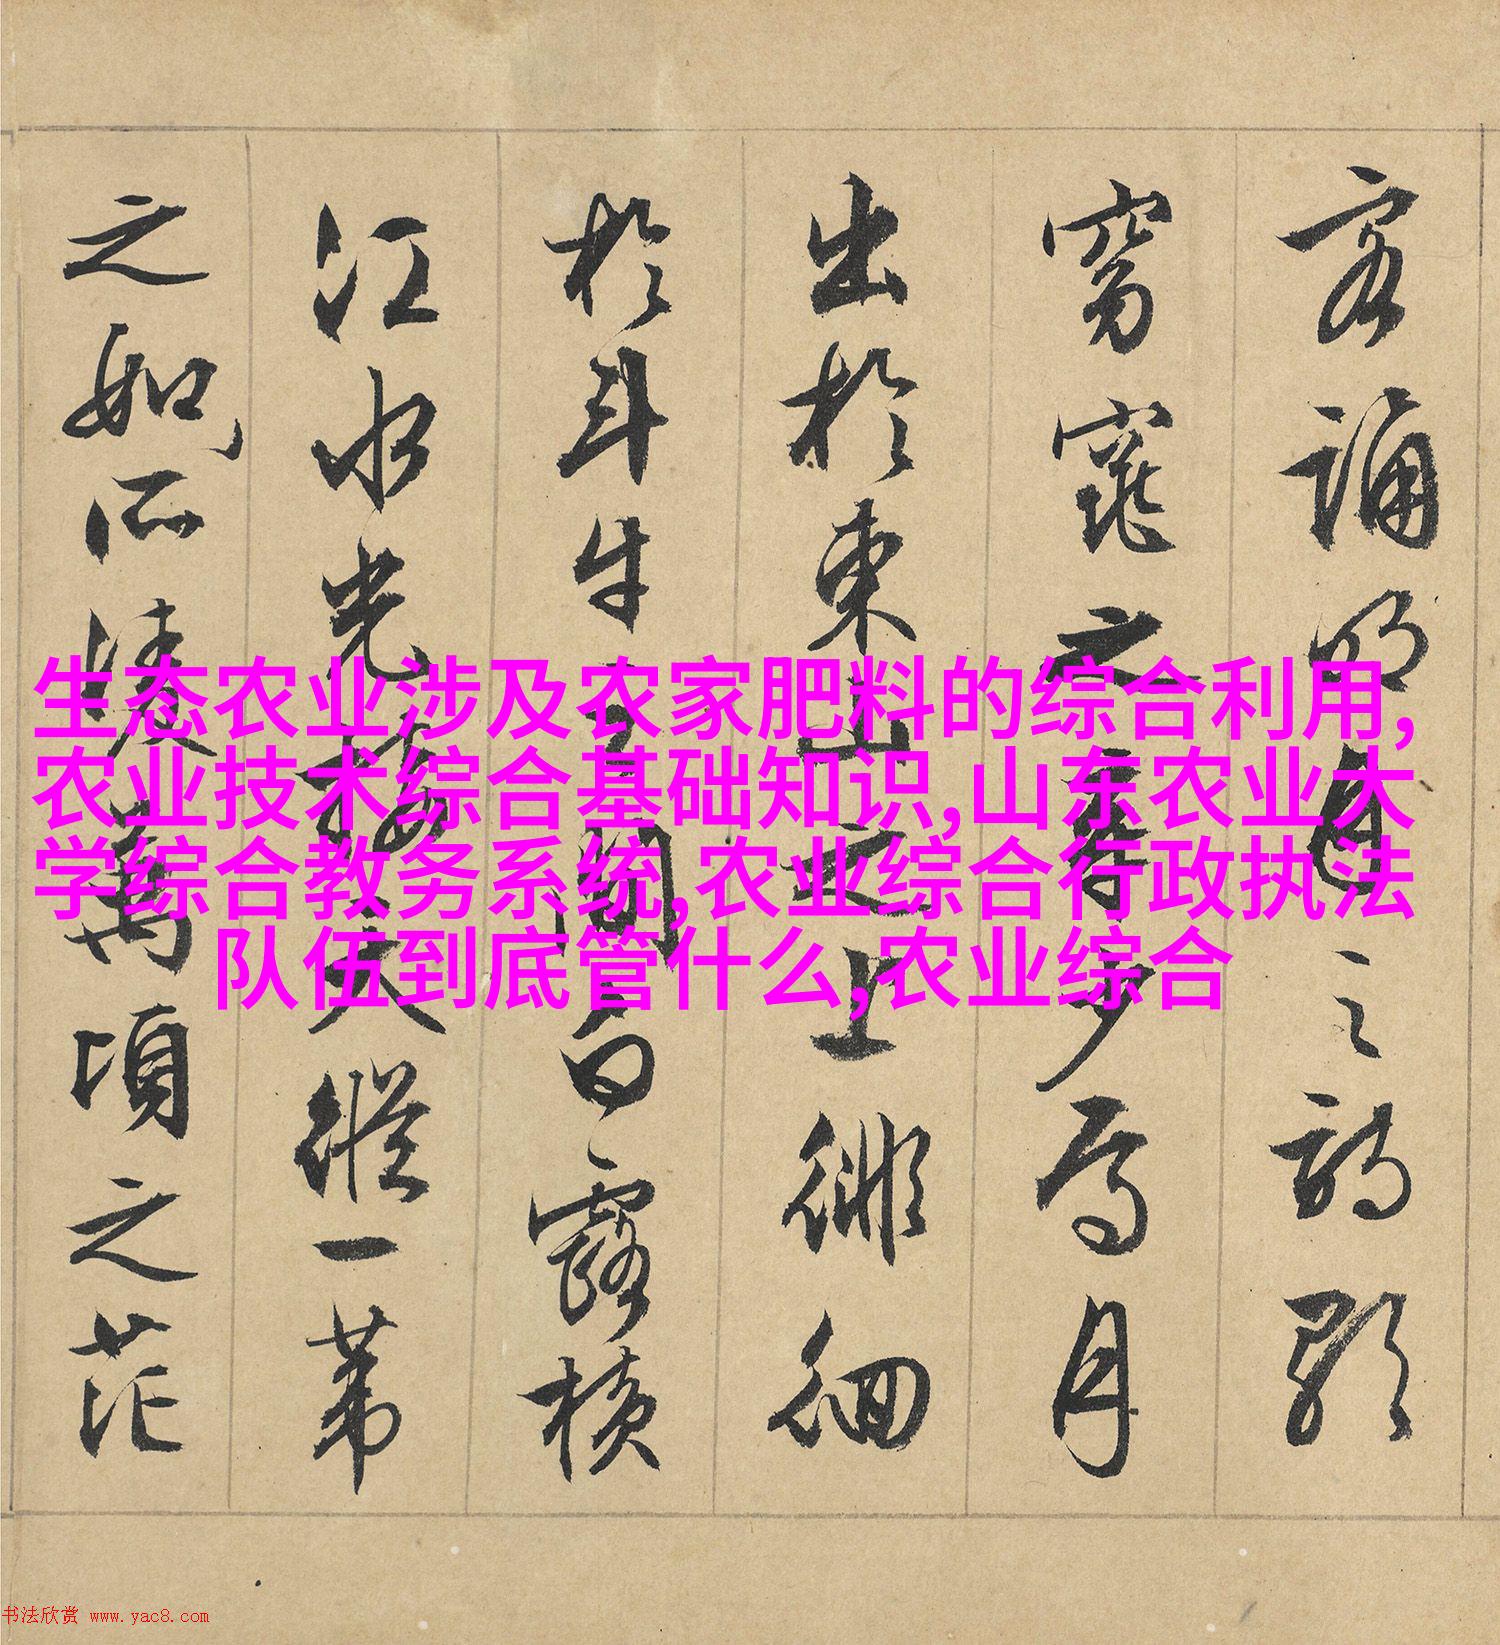 客誦明月之詩歌
窈窕之章少焉月
出於東山之上徘徊
於斗牛之間白露橫
江水光接天縱一葦
之如所淩萬頃之茫
生态农业涉及农家肥料的综合利用,
农业技术综合基础知识,山东农业大
学综合教务系统,农业综合行政执法
队伍到底管什么,农业综合
书法欣赏 www.yac8.com